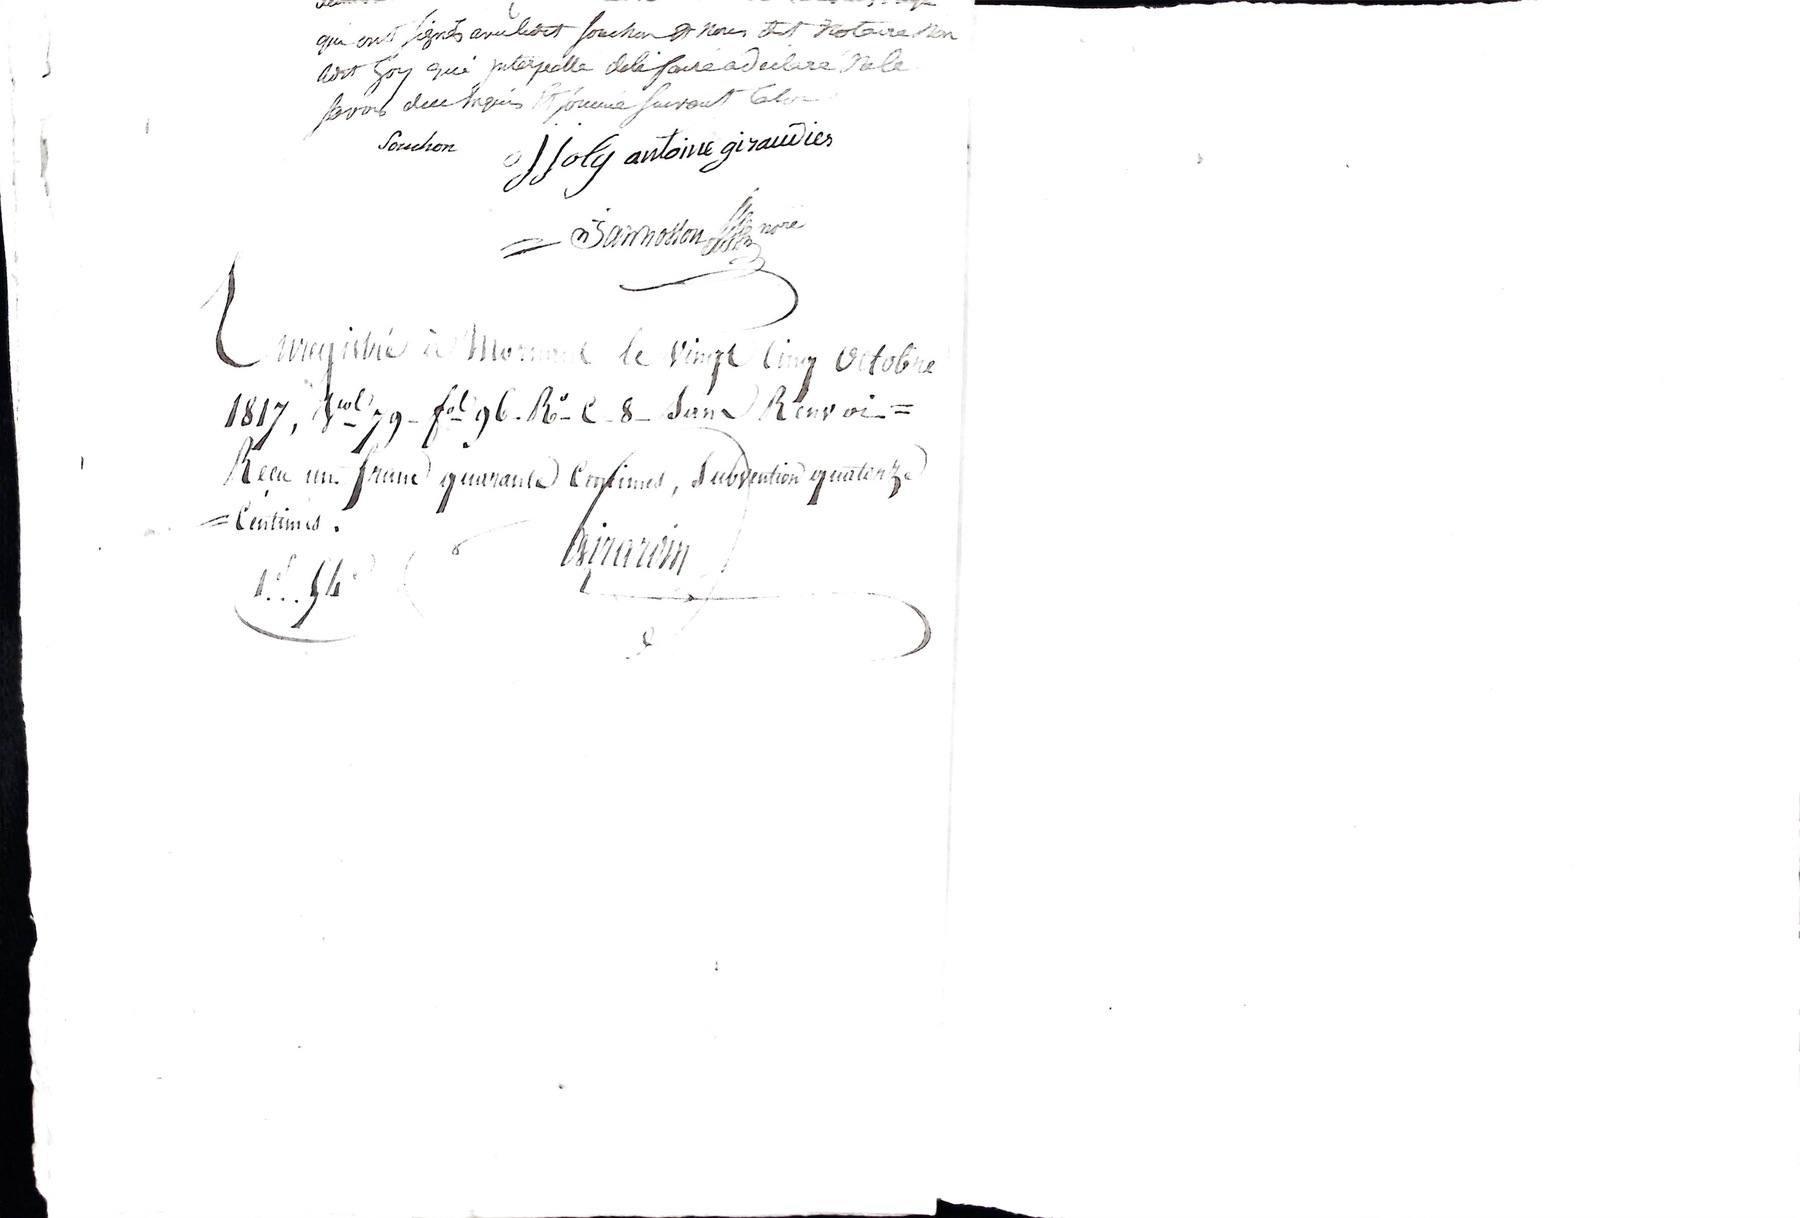 qui ont signés avec ledit souchon et nous dit Notaire Non
ledit Goy qui interpellé de le faire a déclaré Ne le
savoir de ce enquis et sommé suivant la loi
Souchon
J Joly antoine giraudier
Jannosson nore
Enregistré à Mornant le vingt Cinq Octobre
1817, vol. 79 - fol. 96 - Ro - C - 8 - Sans Renvoi =
Reçu un franc quarante Centimes, Subvention quatorze
= Centimes.
Girardin
1f... 54c